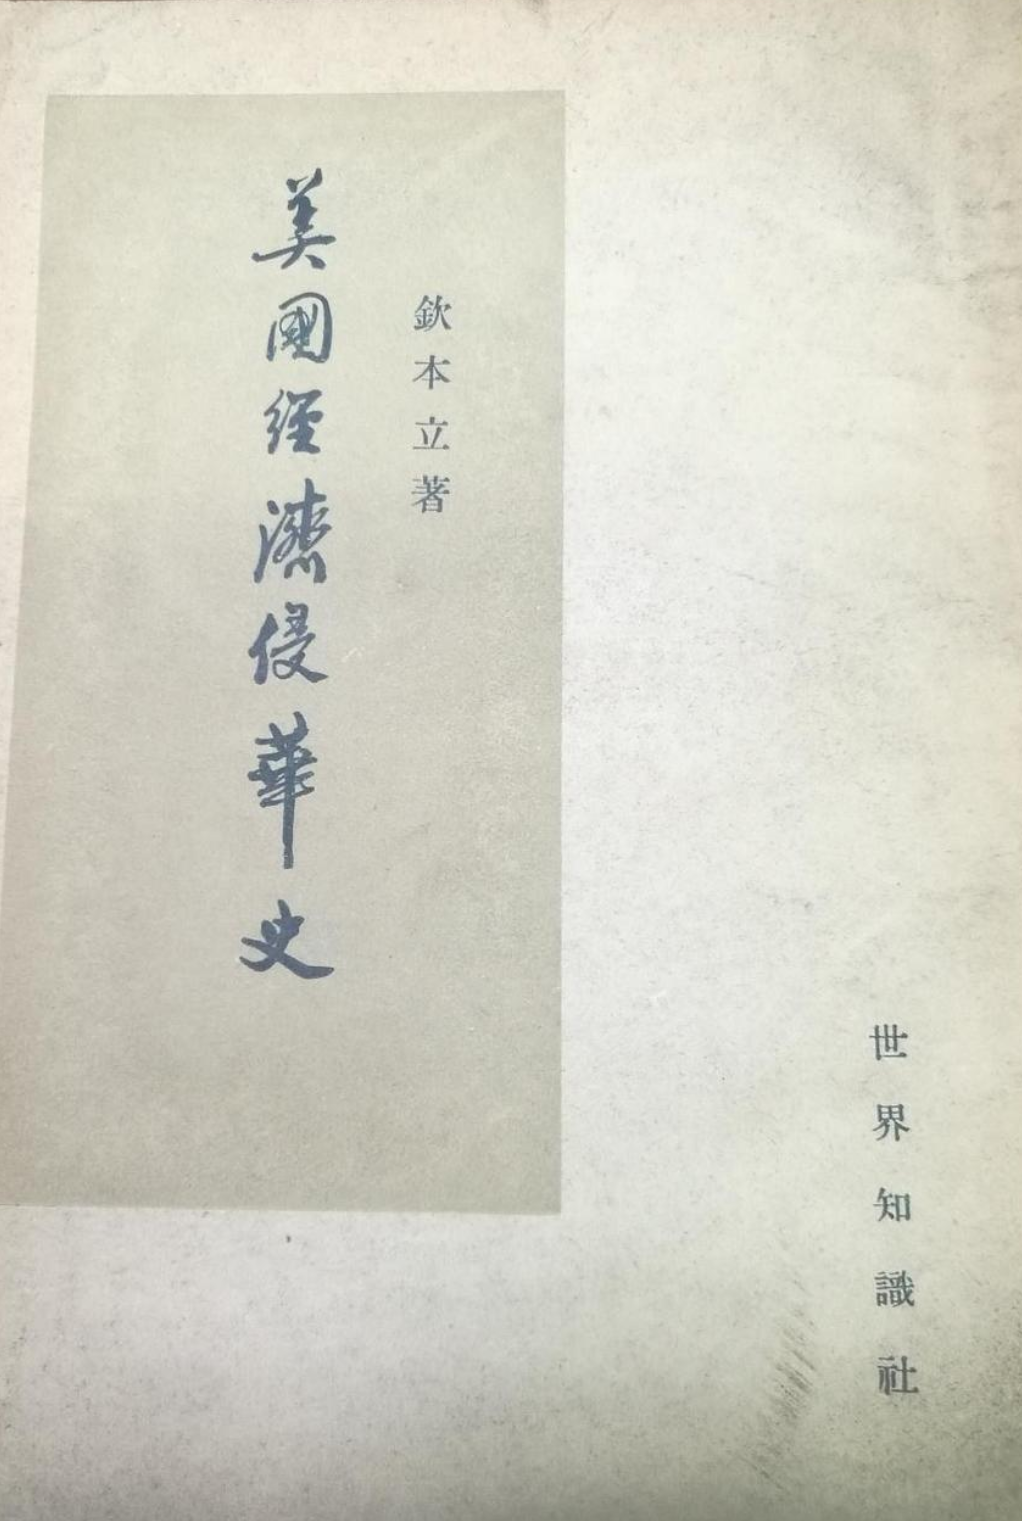 欽本立著
美國經濟侵華史
世界知識社